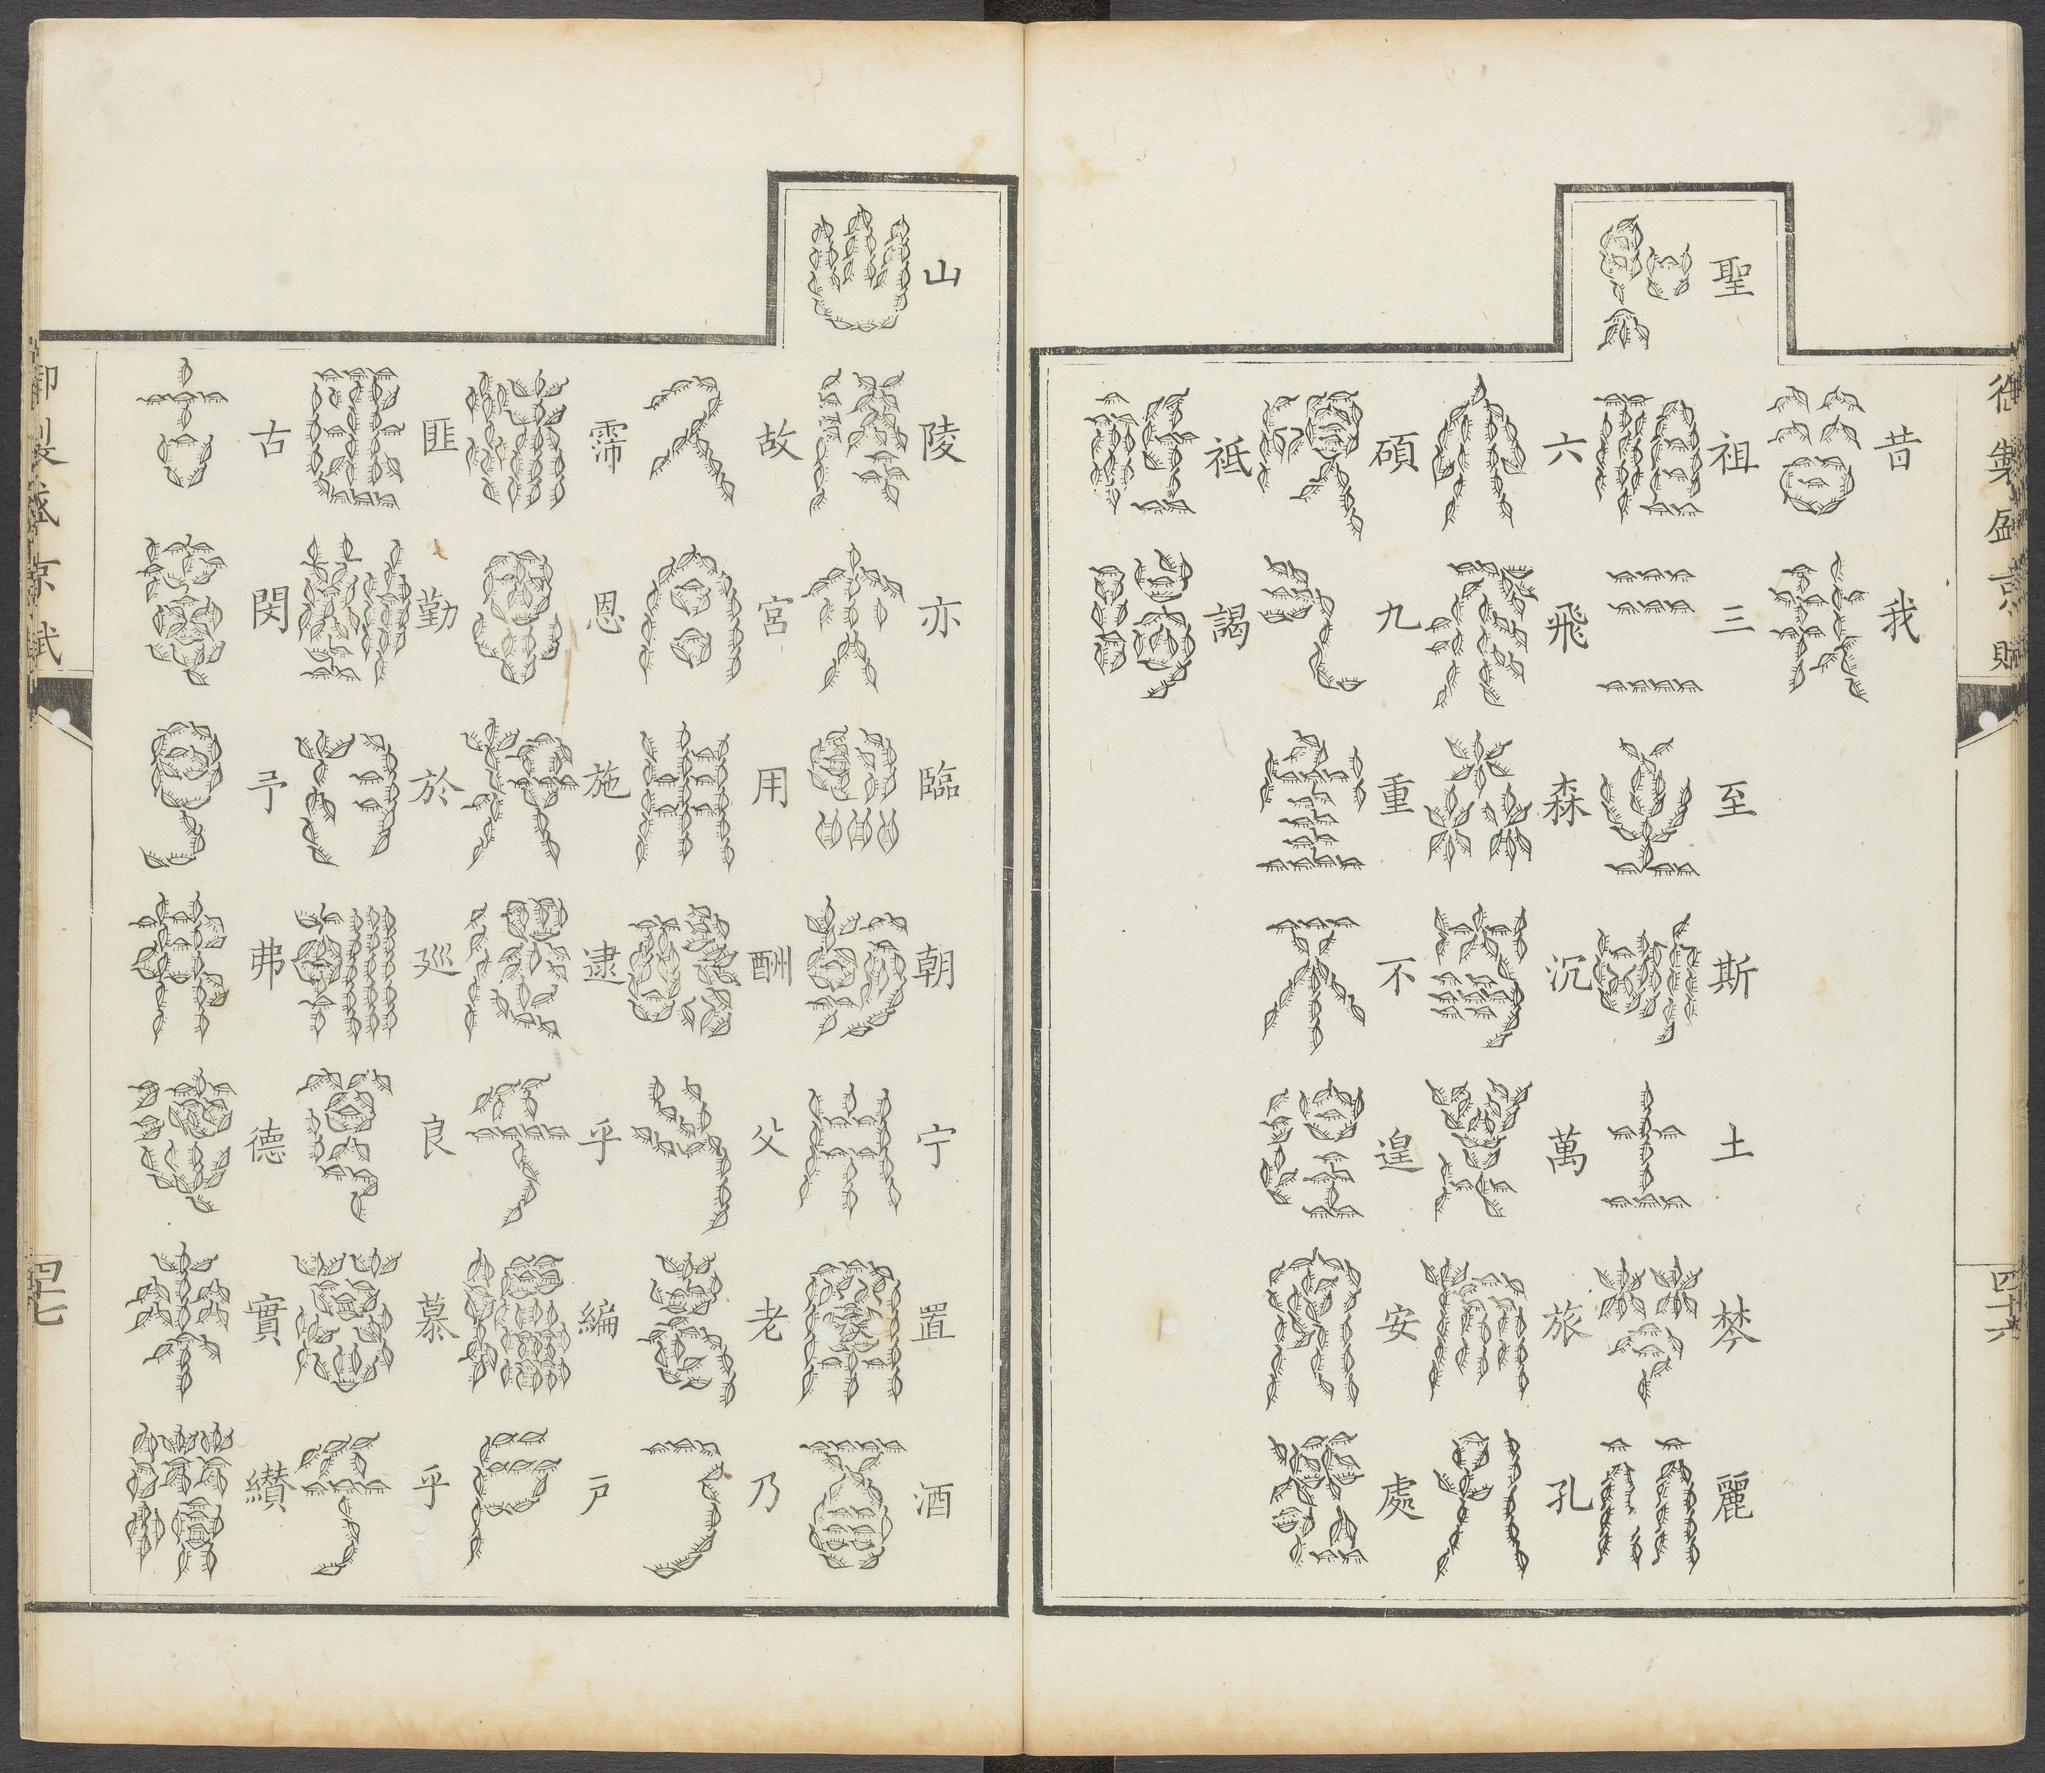 御製盛京賦
四十六
昔我
聖祖三至斯土棽麗
六飛森沉萬旅孔
碩九重不遑安處
祗謁
山陵亦臨朝宁置酒
故宮用酬父老乃
霈恩施逮乎編戸
匪勤於廵良慕乎
古閔予弗德實纉
御製盛京賦
四十七